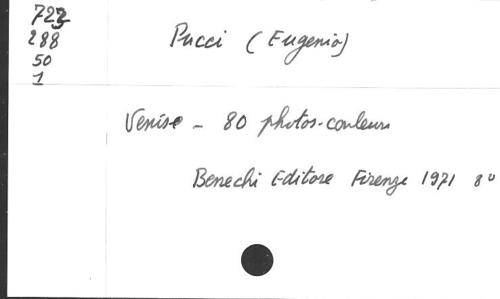 723
288
50
1
Pucci (Eugenio)
Venise - 80 photos-couleurs
Benechi Editore Firenze 1971 8°